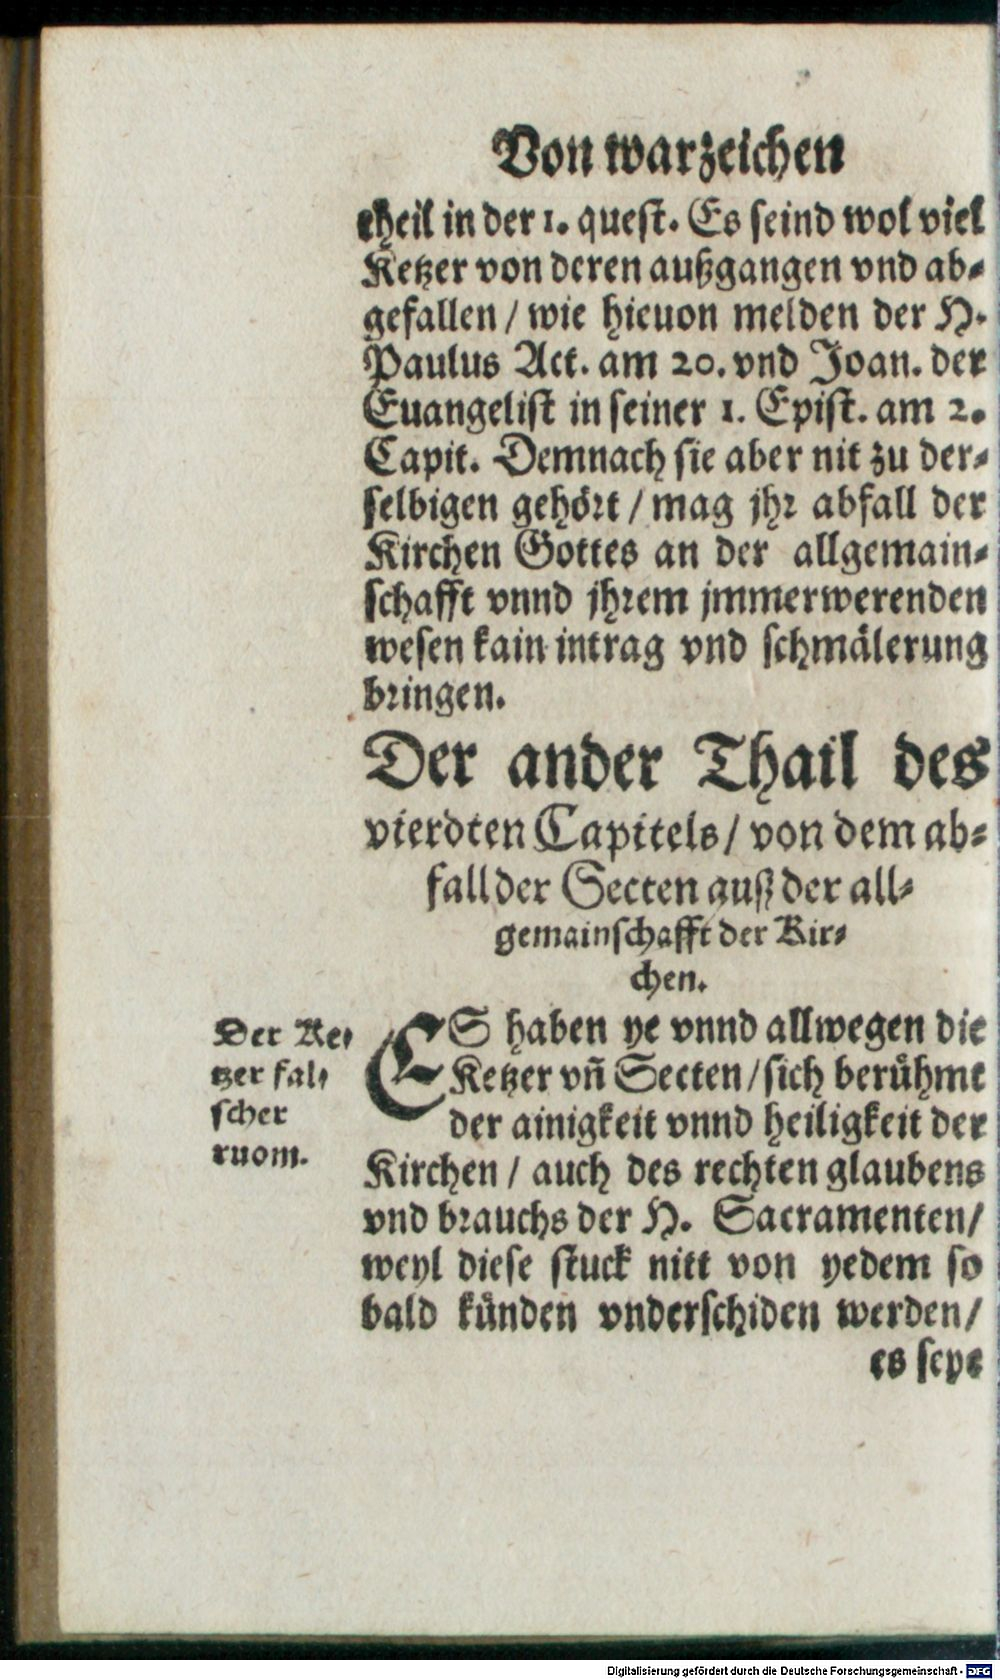 Von warzeichen
theil in der 1. quest. Es seind wol viel
Ketzer von deren außgangen vnd ab-
gefallen / wie hieuon melden der H.
Paulus Act. am 20. vnd Joan. der
Euangelist in seiner 1. Epist. am 2.
Capit. Demnach sie aber nit zu der-
selbigen gehört / mag jhr abfall der
Kirchen Gottes an der allgemain-
schafft vnnd jhrem jmmerwerenden
wesen kain intrag vnd schmälerung
bringen.
Der ander Thail des
vierdten Capitels / von dem ab-
fall der Secten auß der all-
gemainschafft der Kir-
chen.
Der Ke-
tzer fal-
scher
ruom.
ES haben ye vnnd allwegen die
Ketzer vñ Secten / sich berühmt
der ainigkeit vnnd heiligkeit der
Kirchen / auch des rechten glaubens
vnd brauchs der H. Sacramenten /
weyl diese stuck nitt von yedem so
bald künden vnderschiden werden /
es seye
Digitalisierung gefördert durch die Deutsche Forschungsgemeinschaft - DFG